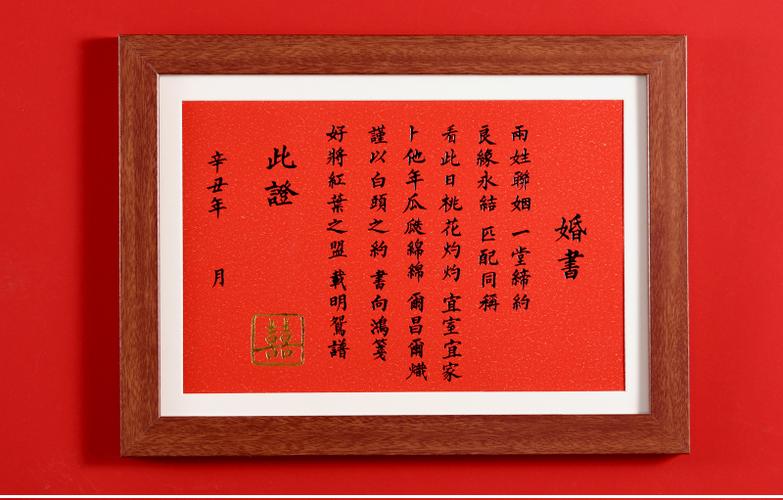 婚書
兩姓聯姻 一堂締約
良緣永結 匹配同稱
看此日桃花灼灼 宜室宜家
卜他年瓜瓞綿綿 爾昌爾熾
謹以白頭之約 書向鴻箋
好將紅葉之盟 載明鴛譜
此證
辛丑年 月
囍